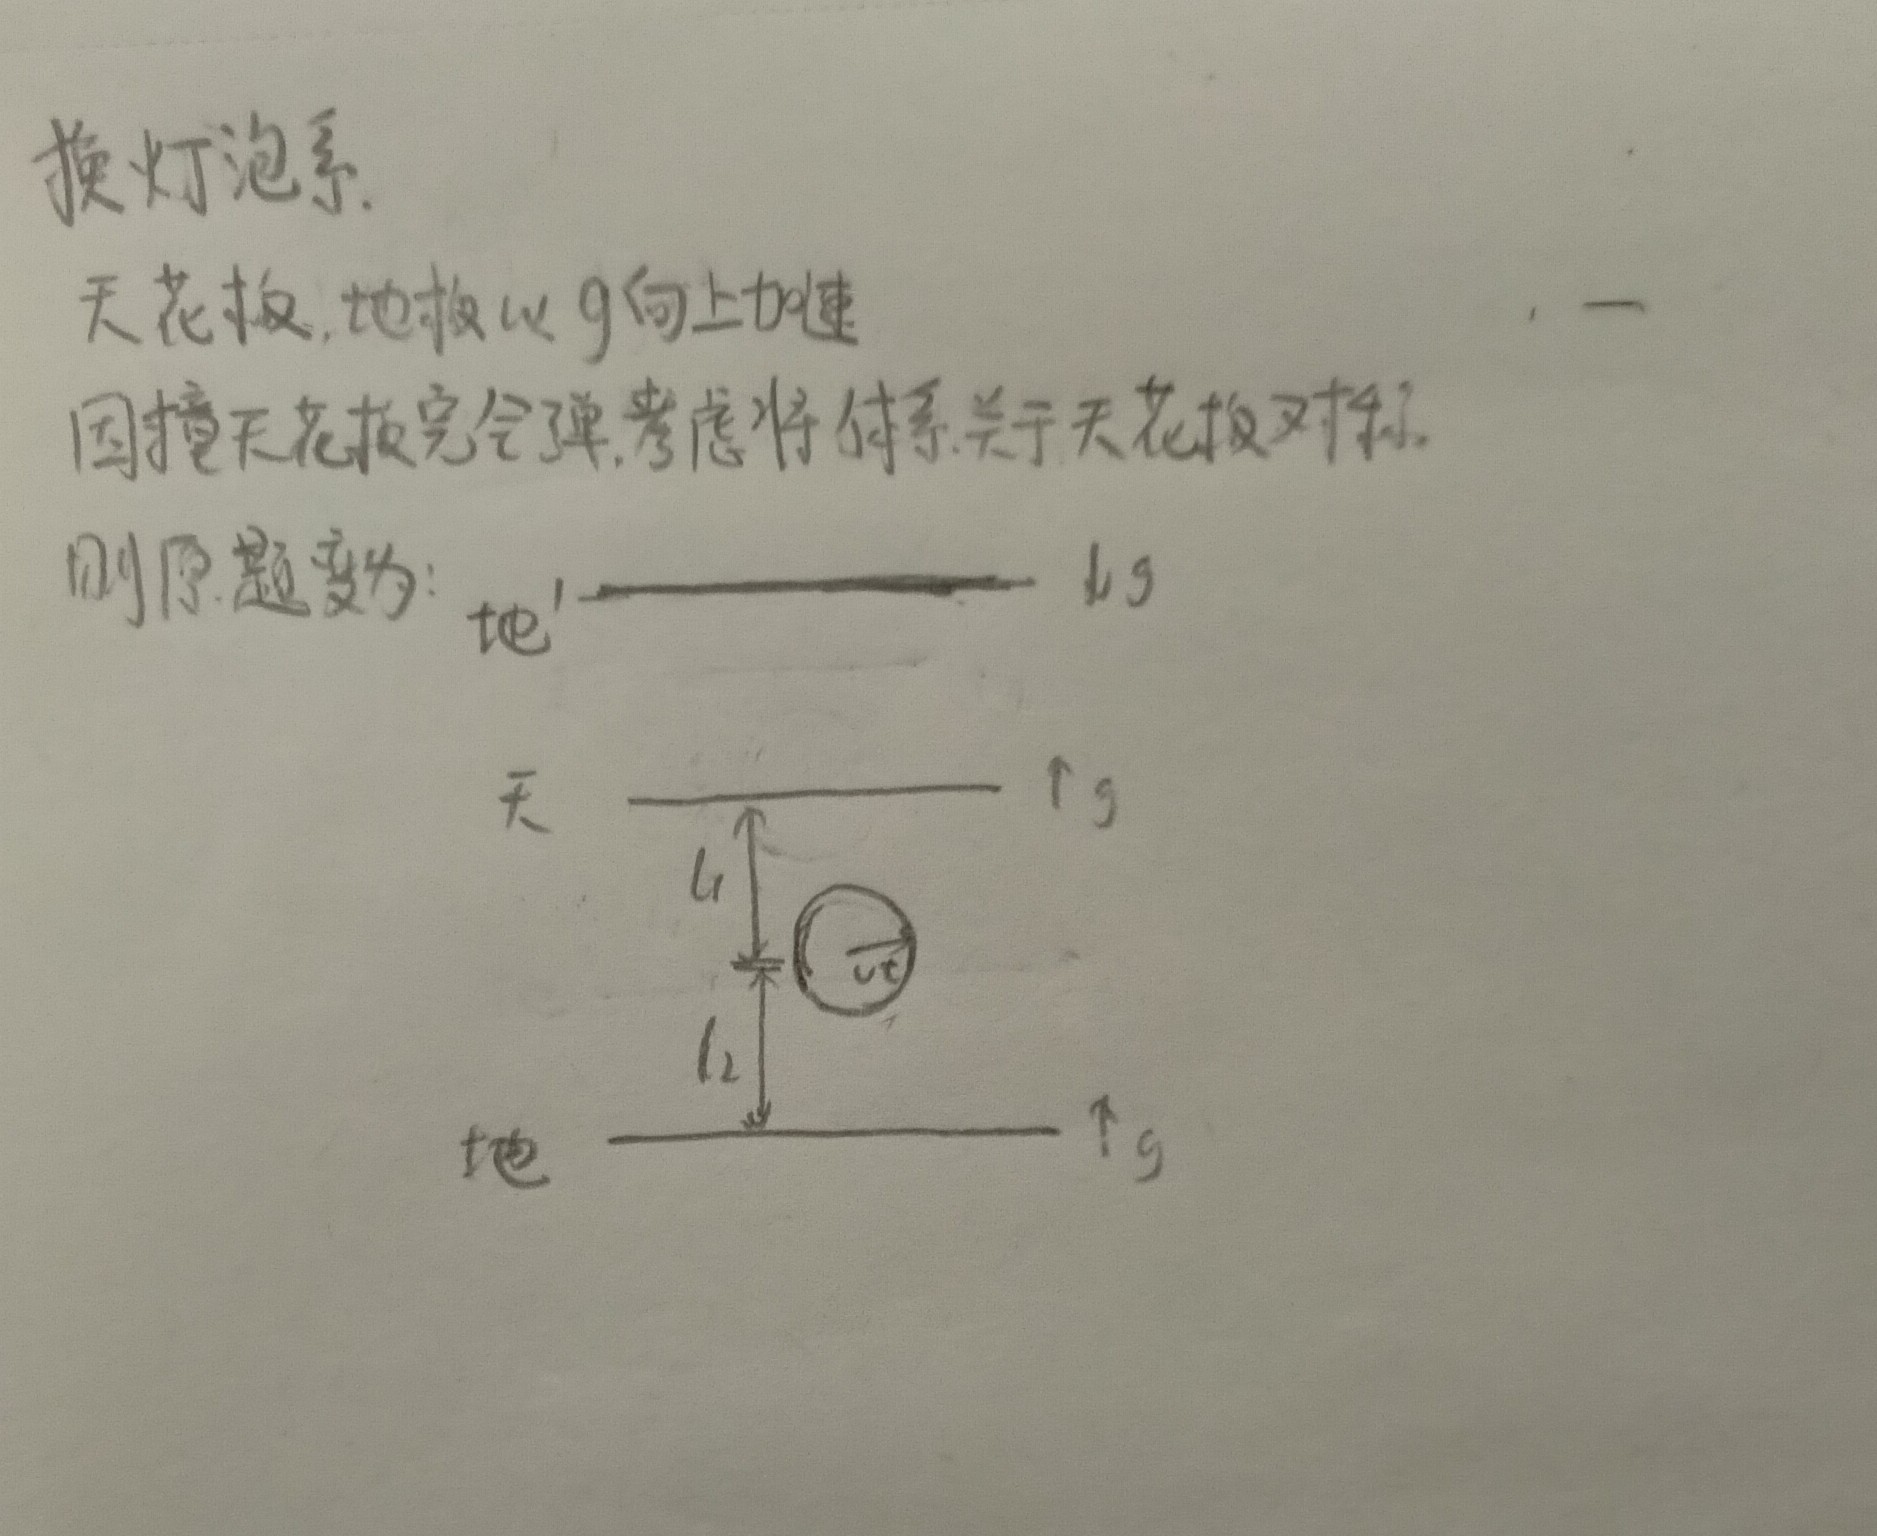 换灯泡系.
天花板,地板以g向上加速
因撞天花板完全弹,考虑将体系关于天花板对称.
则原题变为:
地' ↓g
天 ↑g
l₁
vt
l₂
地 ↑g